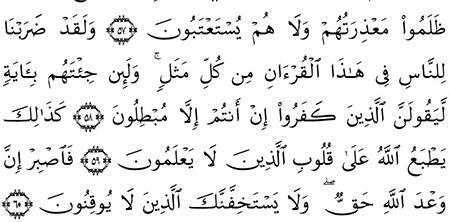 ظَلَمُوا۟ مَعْذِرَتُهُمْ وَلَا هُمْ يُسْتَعْتَبُونَ ۝٥٧ وَلَقَدْ ضَرَبْنَا
لِلنَّاسِ فِى هَـٰذَا ٱلْقُرْءَانِ مِن كُلِّ مَثَلٍ ۚ وَلَئِن جِئْتَهُم بِـَٔايَةٍ
لَّيَقُولَنَّ ٱلَّذِينَ كَفَرُوٓا۟ إِنْ أَنتُمْ إِلَّا مُبْطِلُونَ ۝٥٨ كَذَٰلِكَ
يَطْبَعُ ٱللَّهُ عَلَىٰ قُلُوبِ ٱلَّذِينَ لَا يَعْلَمُونَ ۝٥٩ فَٱصْبِرْ إِنَّ
وَعْدَ ٱللَّهِ حَقٌّ ۖ وَلَا يَسْتَخِفَّنَّكَ ٱلَّذِينَ لَا يُوقِنُونَ ۝٦٠